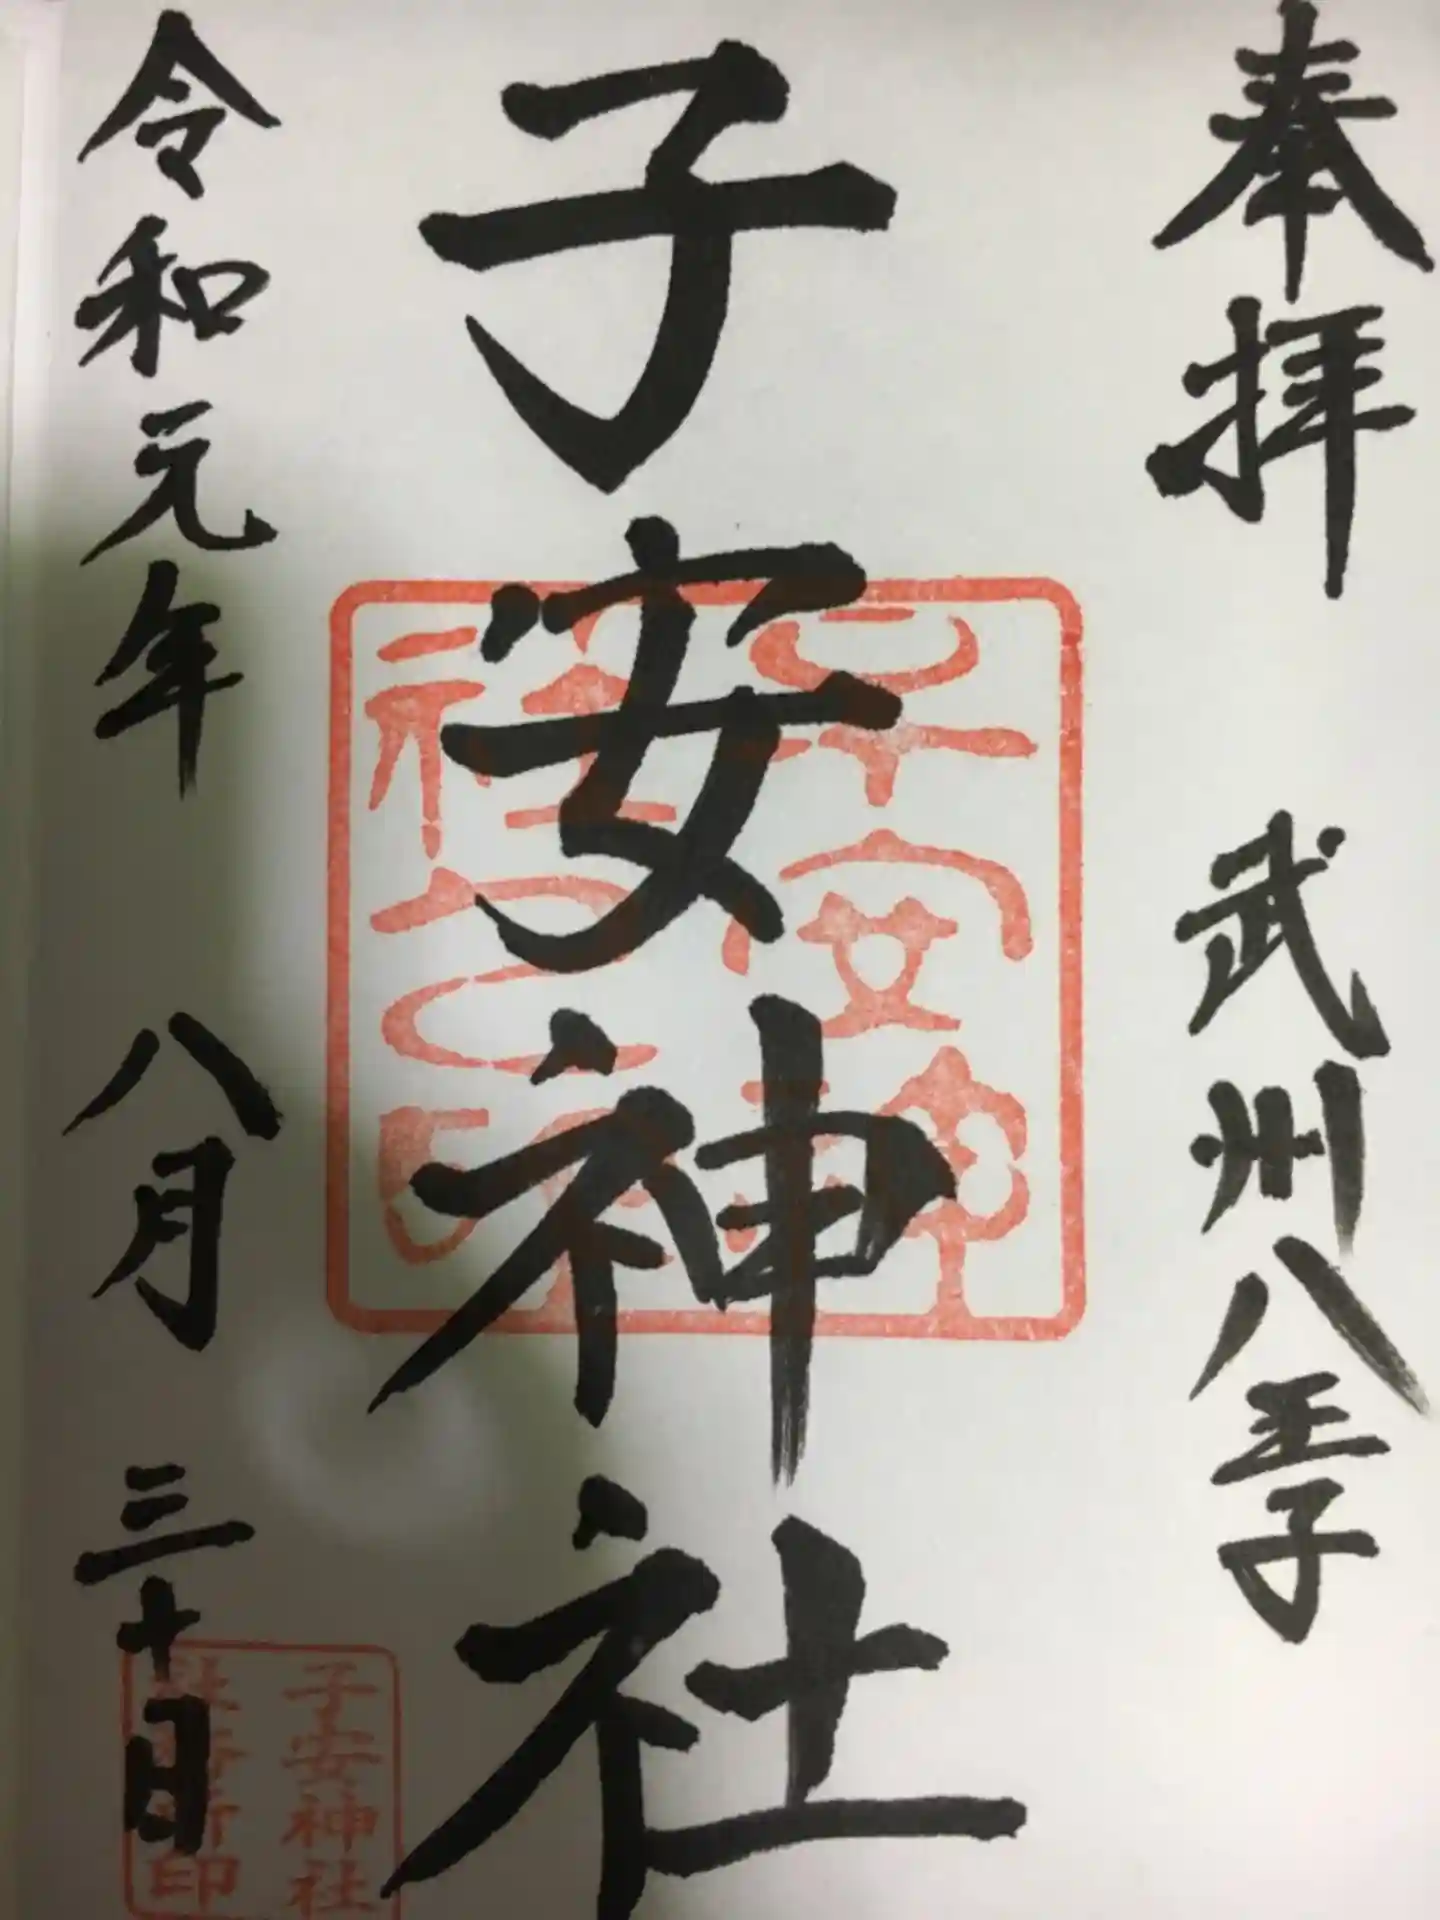 奉拝　武州八王子
子安神社
令和元年　八月　三十日
子安神
社之印
子安神社
社務所印